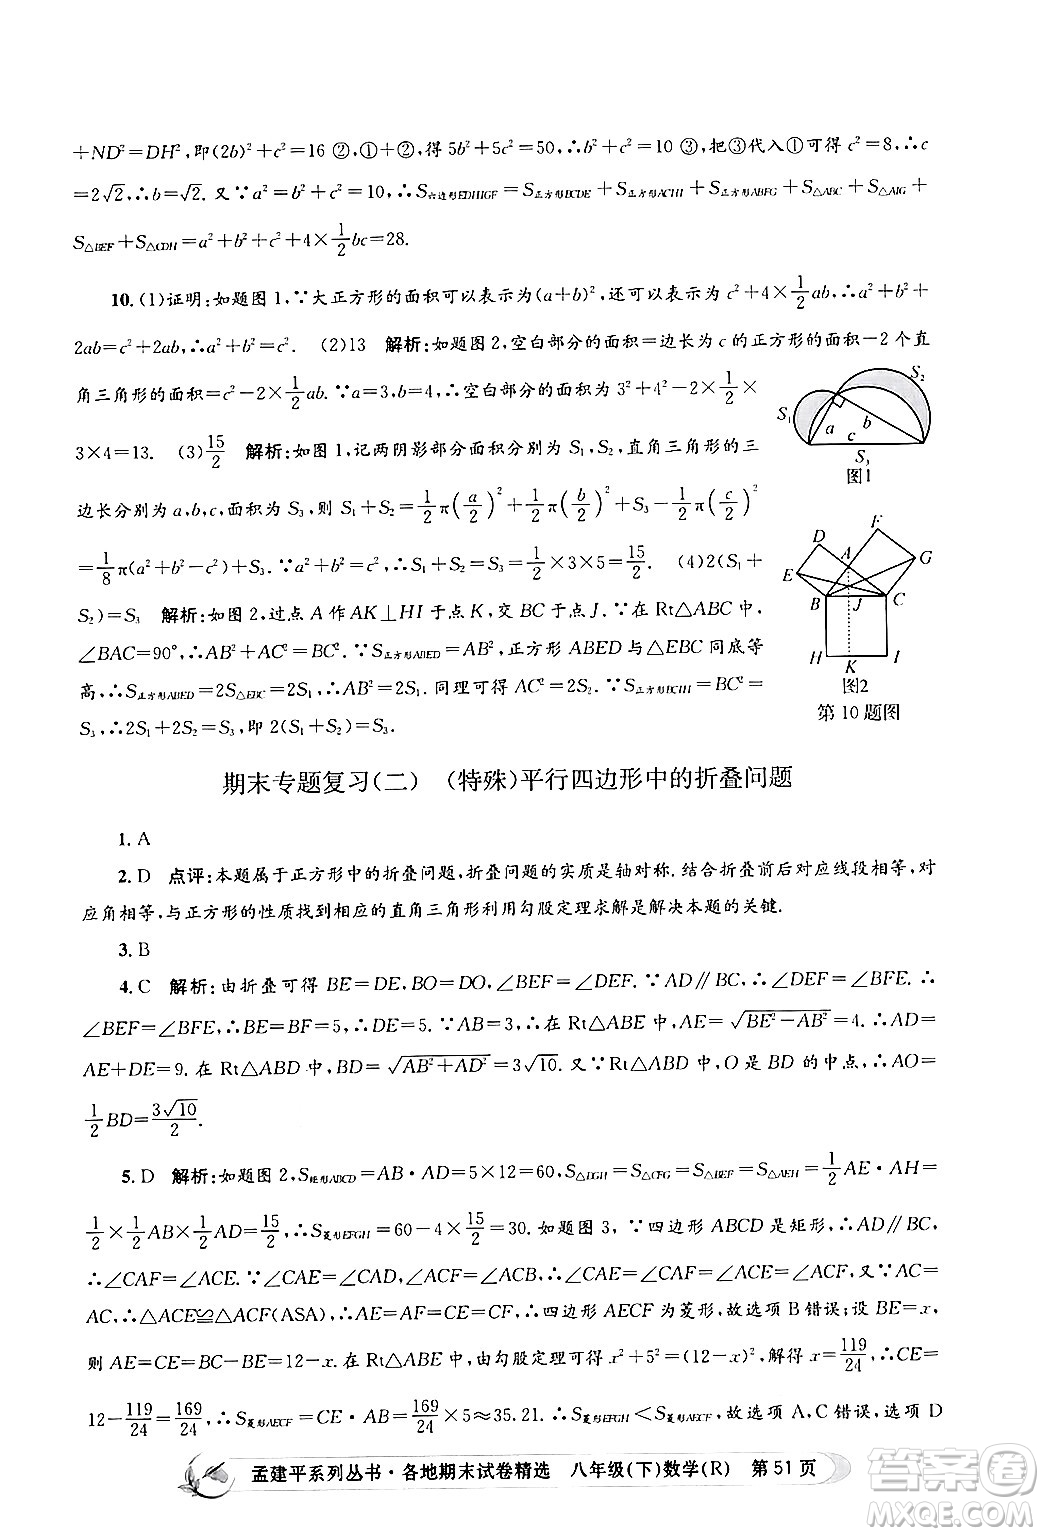 +ND²=DH²,即(2b)²+c²=16 ②,①+②,得5b²+5c²=50,∴b²+c²=10 ③,把③代入①可得c²=8,∴c
=2√2,∴b=√2. 又∵a²=b²+c²=10,∴S六边形EDHIGF=S正方形BCDE+S正方形ACHI+S正方形ABFG+S△ABC+S△AIG+
S△BEF+S△CDH=a²+b²+c²+4×1/2bc=28.
10.(1)证明:如题图1,∵大正方形的面积可以表示为(a+b)²,还可以表示为c²+4×1/2ab,∴a²+b²+
2ab=c²+2ab,∴a²+b²=c². (2)13 解析:如题图2,空白部分的面积=边长为c的正方形的面积-2个直
角三角形的面积=c²-2×1/2ab. ∵a=3,b=4,∴空白部分的面积为3²+4²-2×1/2×
3×4=13. (3)15/2 解析:如图1,记两阴影部分面积分别为S₁,S₂,直角三角形的三
边长分别为a,b,c,面积为S₃,则S₁+S₂=1/2π(a/2)²+1/2π(b/2)²+S₃-1/2π(c/2)²
=1/8π(a²+b²-c²)+S₃. ∵a²+b²=c²,∴S₁+S₂=S₃=1/2×3×5=15/2. (4)2(S₁+
S₂)=S₃ 解析:如图2,过点A作AK⊥HI于点K,交BC于点J. ∵在Rt△ABC中,
∠BAC=90°,∴AB²+AC²=BC². ∵S正方形ABED=AB²,正方形ABED与△EBC同底等
高,∴S正方形ABED=2S△EBC=2S₁,∴AB²=2S₁. 同理可得AC²=2S₂. ∵S正方形BCIH=BC²=
S₃,∴2S₁+2S₂=S₃,即2(S₁+S₂)=S₃.
S₁
S₂
a
b
c
S₃
图1
D
F
A
G
E
B
J
C
H
K
I
图2
第10题图
期末专题复习(二) (特殊)平行四边形中的折叠问题
1. A
2. D 点评:本题属于正方形中的折叠问题,折叠问题的实质是轴对称. 结合折叠前后对应线段相等,对
应角相等,与正方形的性质找到相应的直角三角形利用勾股定理求解是解决本题的关键.
3. B
4. C 解析:由折叠可得BE=DE,BO=DO,∠BEF=∠DEF. ∵AD∥BC,∴∠DEF=∠BFE. ∴
∠BEF=∠BFE,∴BE=BF=5,∴DE=5. ∵AB=3,∴在Rt△ABE中,AE=√(BE²-AB²)=4. ∴AD=
AE+DE=9. 在Rt△ABD中,BD=√(AB²+AD²)=3√10. 又∵在Rt△ABD中,O是BD的中点,∴AO=
1/2BD=3√10/2.
5. D 解析:如题图2,S矩形ABCD=AB·AD=5×12=60,S△DGH=S△CFG=S△BEF=S△AEH=1/2AE·AH=
1/2×1/2AB×1/2AD=15/2,∴S菱形EFGH=60-4×15/2=30. 如题图3,∵四边形ABCD是矩形,∴AD∥BC,
∴∠CAF=∠ACE. ∵∠CAE=∠CAD,∠ACF=∠ACB,∴∠CAE=∠CAF=∠ACE=∠ACF. 又∵AC=
AC,∴△ACE≌△ACF(ASA),∴AE=AF=CE=CF,∴四边形AECF为菱形,故选项B错误;设BE=x,
则AE=CE=BC-BE=12-x. 在Rt△ABE中,由勾股定理可得x²+5²=(12-x)²,解得x=119/24,∴CE=
12-119/24=169/24,∴S菱形AECF=CE·AB=169/24×5≈35.21,∴S菱形EFGH<S菱形AECF,故选项A,C错误,选项D
孟建平系列丛书·各地期末试卷精选 八年级(下)数学(R) 第51页
答案圈
MXQE.COM